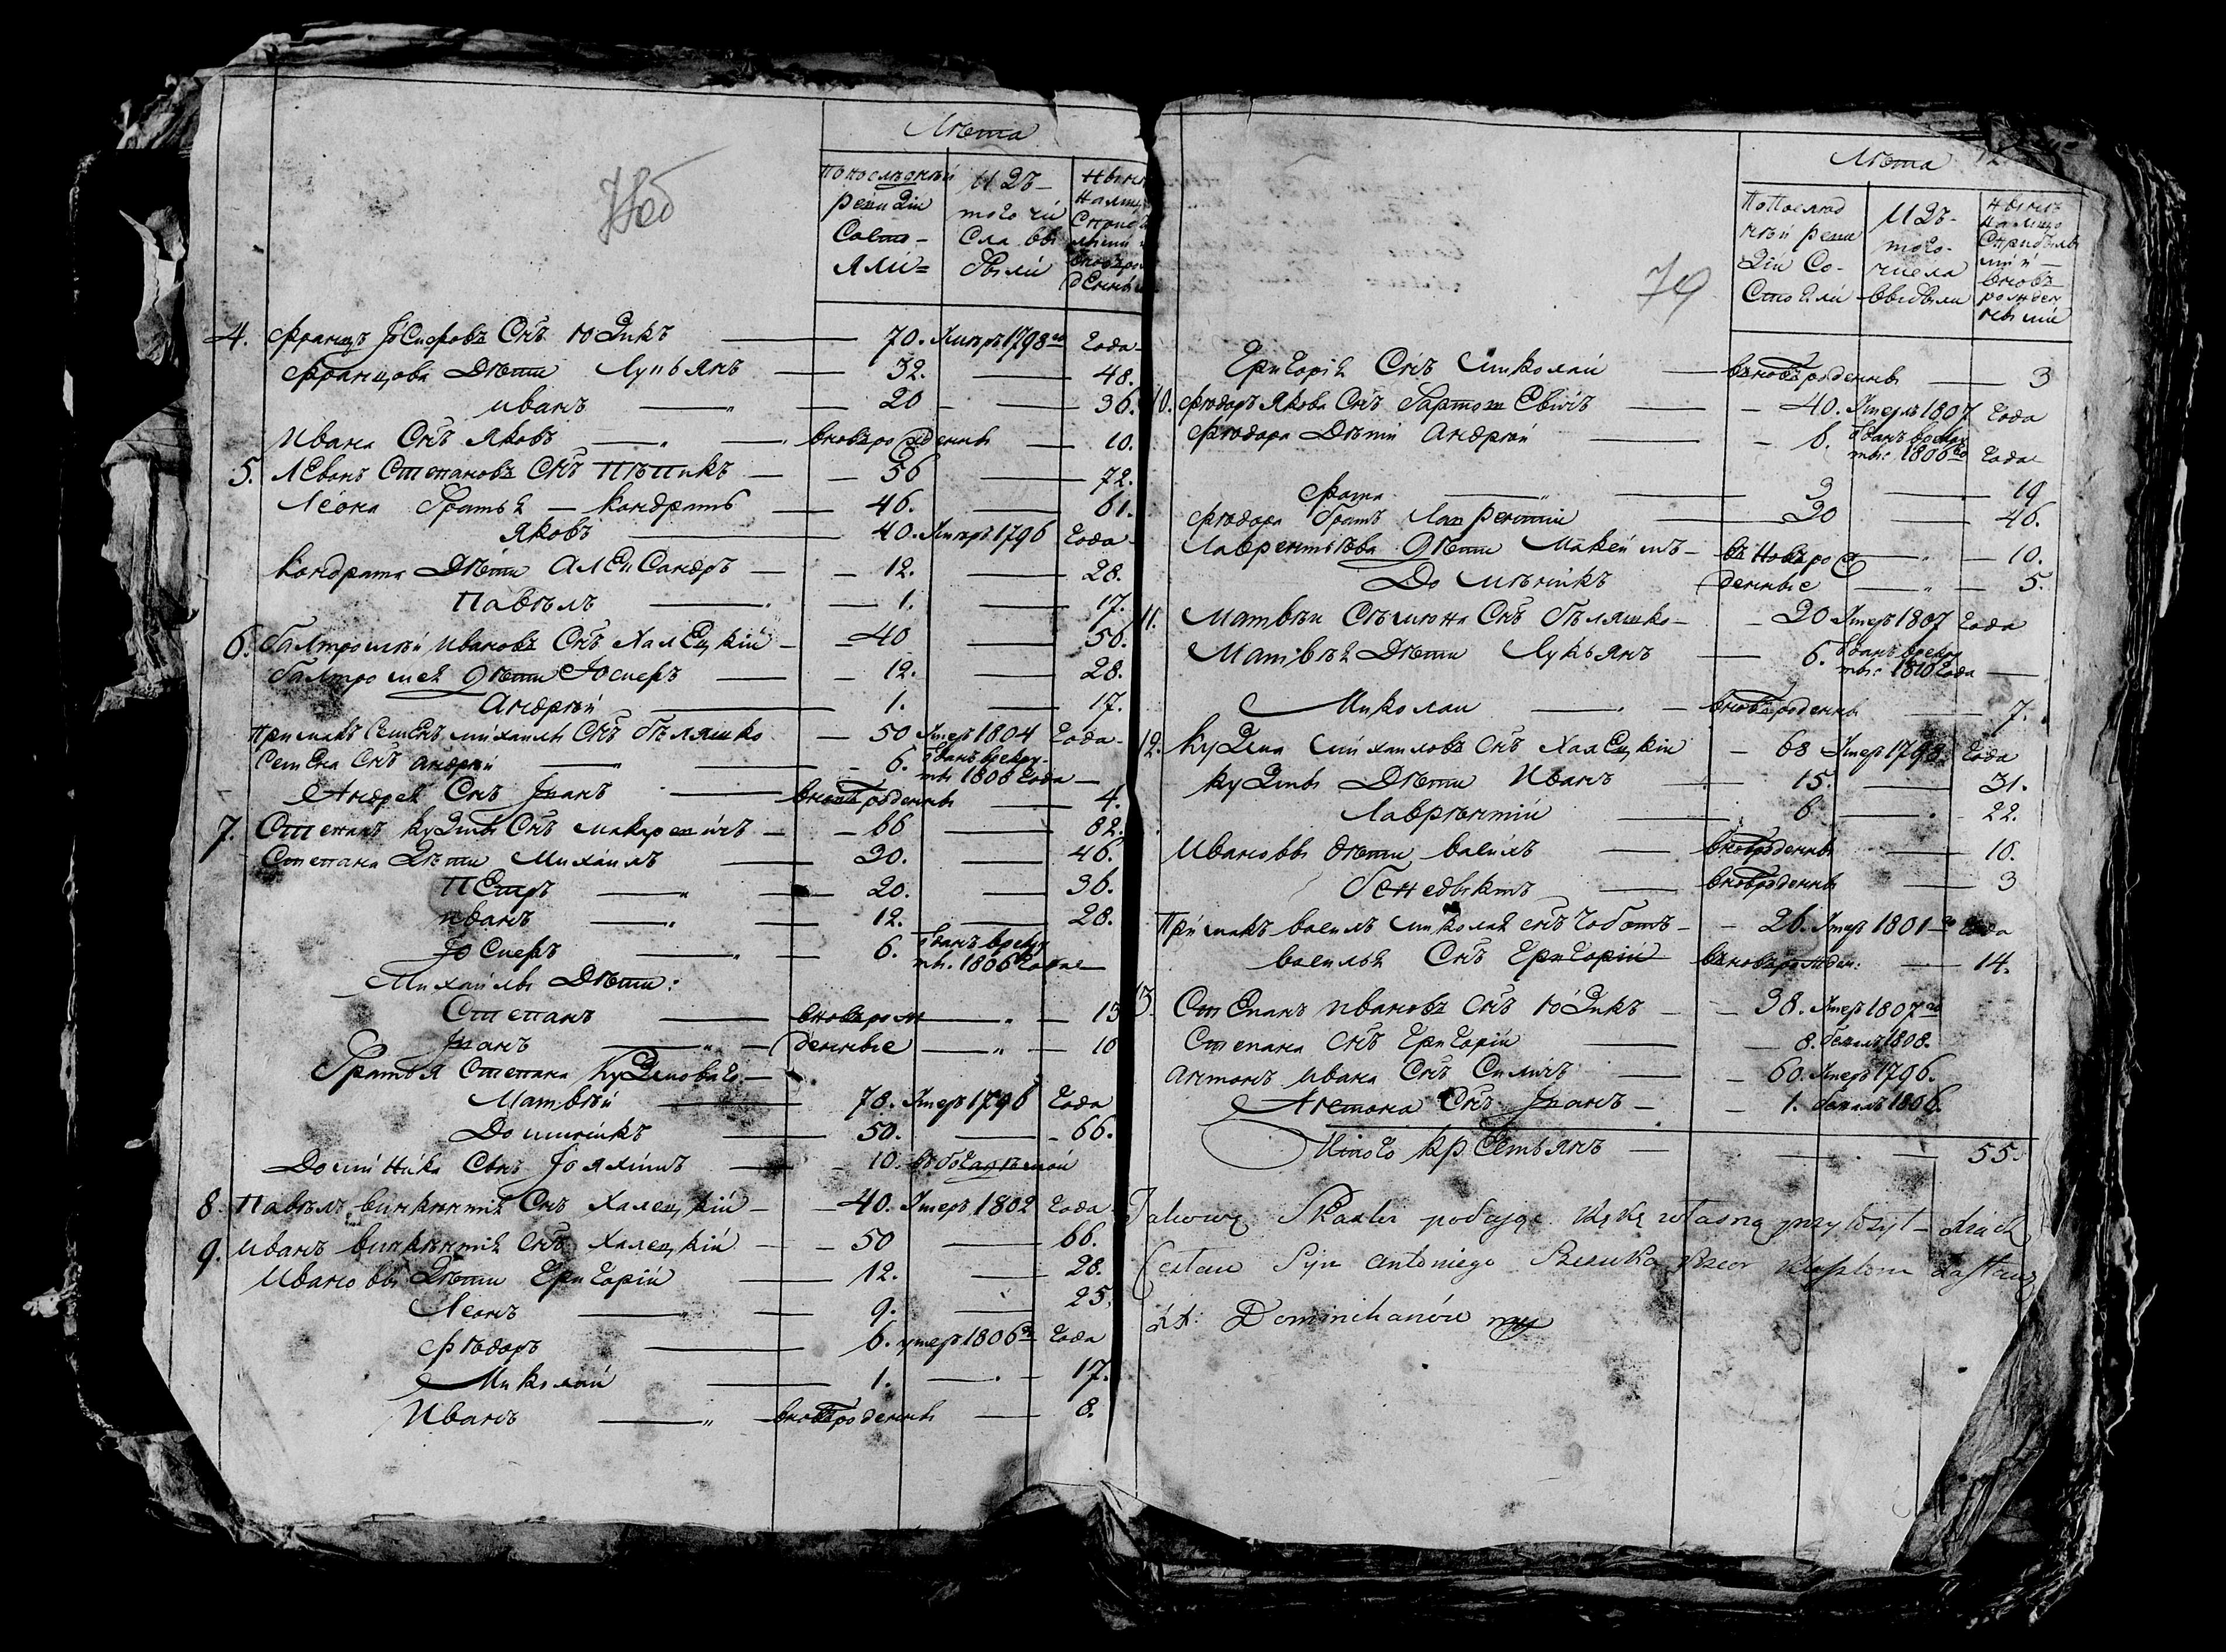 Лѣта
по послѣднѣй ревизіи состояли
изъ того числа выбыли
4. Францъ Іосифовъ Снъ Юзикъ — 70. Умеръ 1798го Года
Францова Дѣти Лукьянъ — 32. — 48.
иванъ — 20 — 36.
Ивана Снъ Яковъ — вновьрожденны — 10.
5. Леванъ Степановъ Снъ — 56 — 72.
Леона Братья — Кондратъ — 46. — 61.
Яковъ — 40. Умеръ 1796 Года
Кондрата Дѣти АлеКсандръ — 12. — 28.
Павѣлъ — 1. — 17.
6. Балтромѣй ивановъ Снъ ХалЕцкій — 40 — 56.
Балтромея дѣти Іосифъ — 12. — 28.
Андрѣй — 1. — 17.
Примакъ Семенъ михаилы Снъ бѣляшко — 50 Умеръ 1804 Года
Семена Снъ андрѣй — 6. Зданъ врекруты 1806 Года
Андрея Снъ Іванъ — вноврожденны — 4.
7. Степанъ Кузмы Снъ макаревичъ — 66 — 82.
Степана Дѣти Михаилъ — 30. — 46.
ПЕтръ — 20. — 36.
иванъ — 12. — 28.
Іосифъ — 6. Зданъ врекруты. 1806 Года
Михаилы Дѣти:
Степанъ — вновьрож — 13
Іванъ — денные — 10
Братья Степана Кузмоваго —
Матвѣй — 78. Умеръ 1796 Года
Доминикъ — 50. — 66.
Доминика Снъ Іоахимъ — 10.
8. Павѣлъ винкентія Снъ Халецкій — 40. Умеръ 1802 Года
9. иванъ винкѣнтія Снъ Халецкій — 50 — 66.
Ивановы Дѣти Григорій — 12. — 28.
Леонъ — 9. — 25.
Ѳѣдоръ — 6. умеръ 1806го Года
Миколай — 1. — 17.
Иванъ — вновьрожденны — 8.
79
Лѣта
По послѣднѣй ревизіи Состояли
Изъ того числа выбыли
нынѣ на лицо Сприбылыми и вновь рожденными
Григорія Снъ Миколай — вновьрожденны — 3
10. Ѳѣдоръ Якова Снъ БартошЕвичъ — 40. Умеръ 1807 Года
Ѳѣдора Дѣти андрѣй — 6. Зданъ врекруты. 1806го Года
Ѳома — 3 — 19
Ѳѣдора братъ Лаврентій — 30 — 46.
Лаврентьева дѣти Макси мъ — вьновьрож — 10.
Доминікъ — денные — 5.
11. Матвѣй Сѣмиона Снъ бѣляшко — 30 Умеръ 1807 Года
Матвѣя Дѣти Лукьянъ — 6. Зданъ врекруты. 1810 Года
Миколаи — вновьрожденны — 7.
12. Кузма михаиловъ снъ ХалЕцкій — 68 Умеръ 1798 Года
Кузмы Дѣти Иванъ — 15. — 31.
Лаврѣнтій — 6 — 22.
Ивановы дѣти василь — вноврожденны — 10.
Бенедыктъ — вноврожденны — 3
Примакъ василь миколая снъ Чоботъ — 26. Умеръ 1801го Года
василья Снъ Григорій — вьновьрожден: — 14.
13. СтЕпанъ ивановъ снъ Юзикъ — 38. Умеръ 1807го
Степана снъ Григорій — 8. бежалъ 1808.
антонъ ивана Снъ Силичъ — 60. Умеръ 1796.
Антона Снъ Іванъ — 1. бежалъ 1806.
Итого крестьянъ — 55.
Takową Skazkę podając Rękę własną przyłożył
Syn Antoniego
Dominikanów